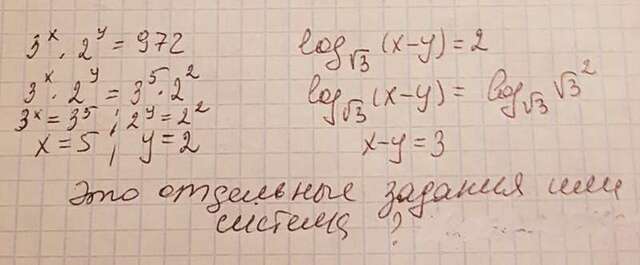 3^x · 2^y = 972
3^x · 2^y = 3^5 · 2^2
3^x = 3^5 ; 2^y = 2^2
x = 5 ; y = 2
log_√3 (x-y) = 2
log_√3 (x-y) = log_√3 √3^2
x-y = 3
Это отдельные задания или
система ?